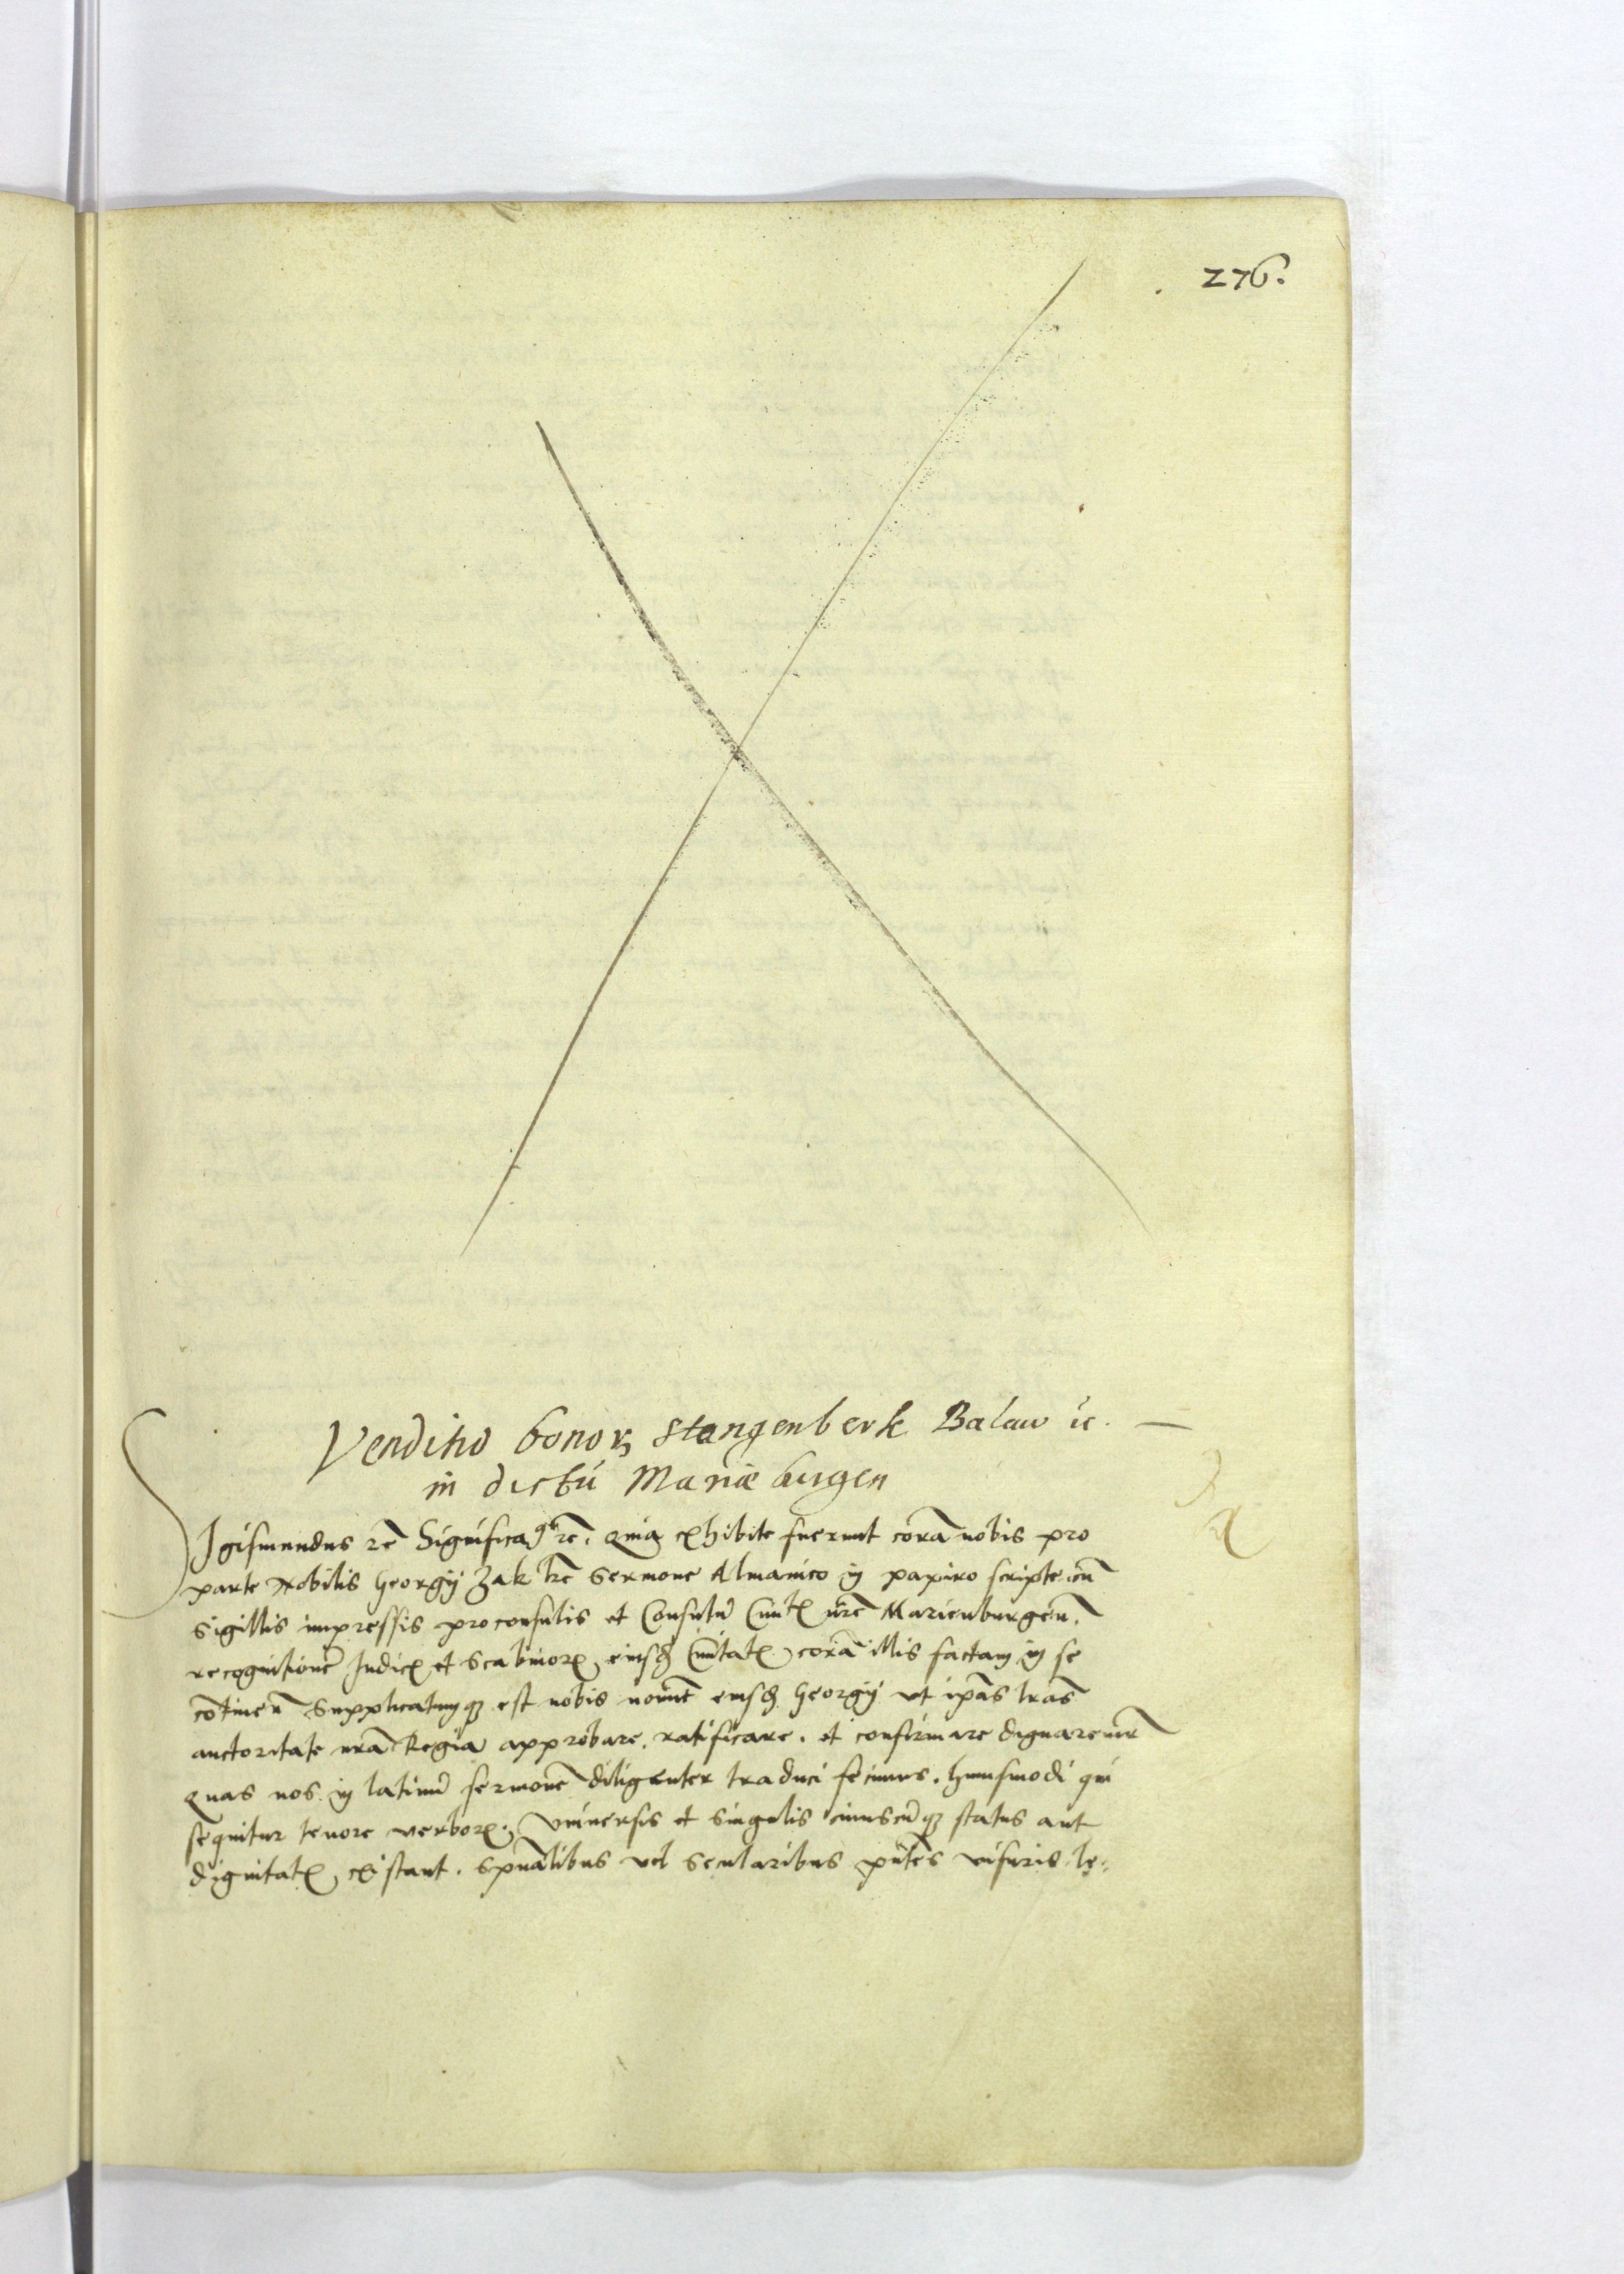 276.
Venditio bonorꝝ Stangenberk Balaw ꝛc.
in dictu Mariæburgen
Sigismundus ꝛc̃ Significaꝰ ꝛc̃. Quia exhibite fuerunt corã nobis pro
parte Nobilis Georgij Zak lr̃e Sermone Almanico in papiro scripte, cũ
Sigillis impressis proconsulis et Consulũ Ciuitꝭ nr̃e Marienburgeñ.
recognitionẽ Iudicꝭ et Scabinorꝝ eiusdꝫ Ciuitatꝭ corã illis factam in se
cõtineñ Supplicatumqꝫ est nobis noĩe eiusdꝫ Georgij vt ip̃as lr̃as
auctoritate nr̃a Regia approbare. ratificare. et confirmare dignaremur
Quas nos in latinũ sermonẽ diligenter traduci fecimus. huiusmodi qui
sequitur tenore verborꝝ. Vniuersis et singulis cuiuscũqꝫ status aut
dignitatꝭ existant. Sp̃ualibus vel Secularibus pñtes visuris le-